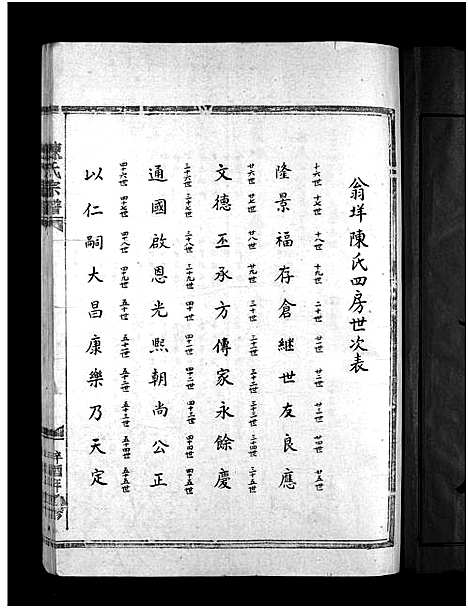 翁垟陳氏四房世次表
十六世 十七世 十八世 十九世 二十世 廿一世 廿二世 廿三世 廿四世 廿五世
隆景福存倉継世友良應
廿六世 廿七世 廿八世 廿九世 三十世 三十一世 三十二世 三十三世 三十四世 三十五世
文德丕承方傳家永餘慶
三十六世 三十七世 三十八世 三十九世 四十世 四十一世 四十二世 四十三世 四十四世 四十五世
通國啟恩光熙朝尚公正
四十六世 四十七世 四十八世 四十九世 五十世 五十一世 五十二世 五十三世 五十四世 五十五世
以仁嗣大昌康樂乃天定
陳氏宗譜